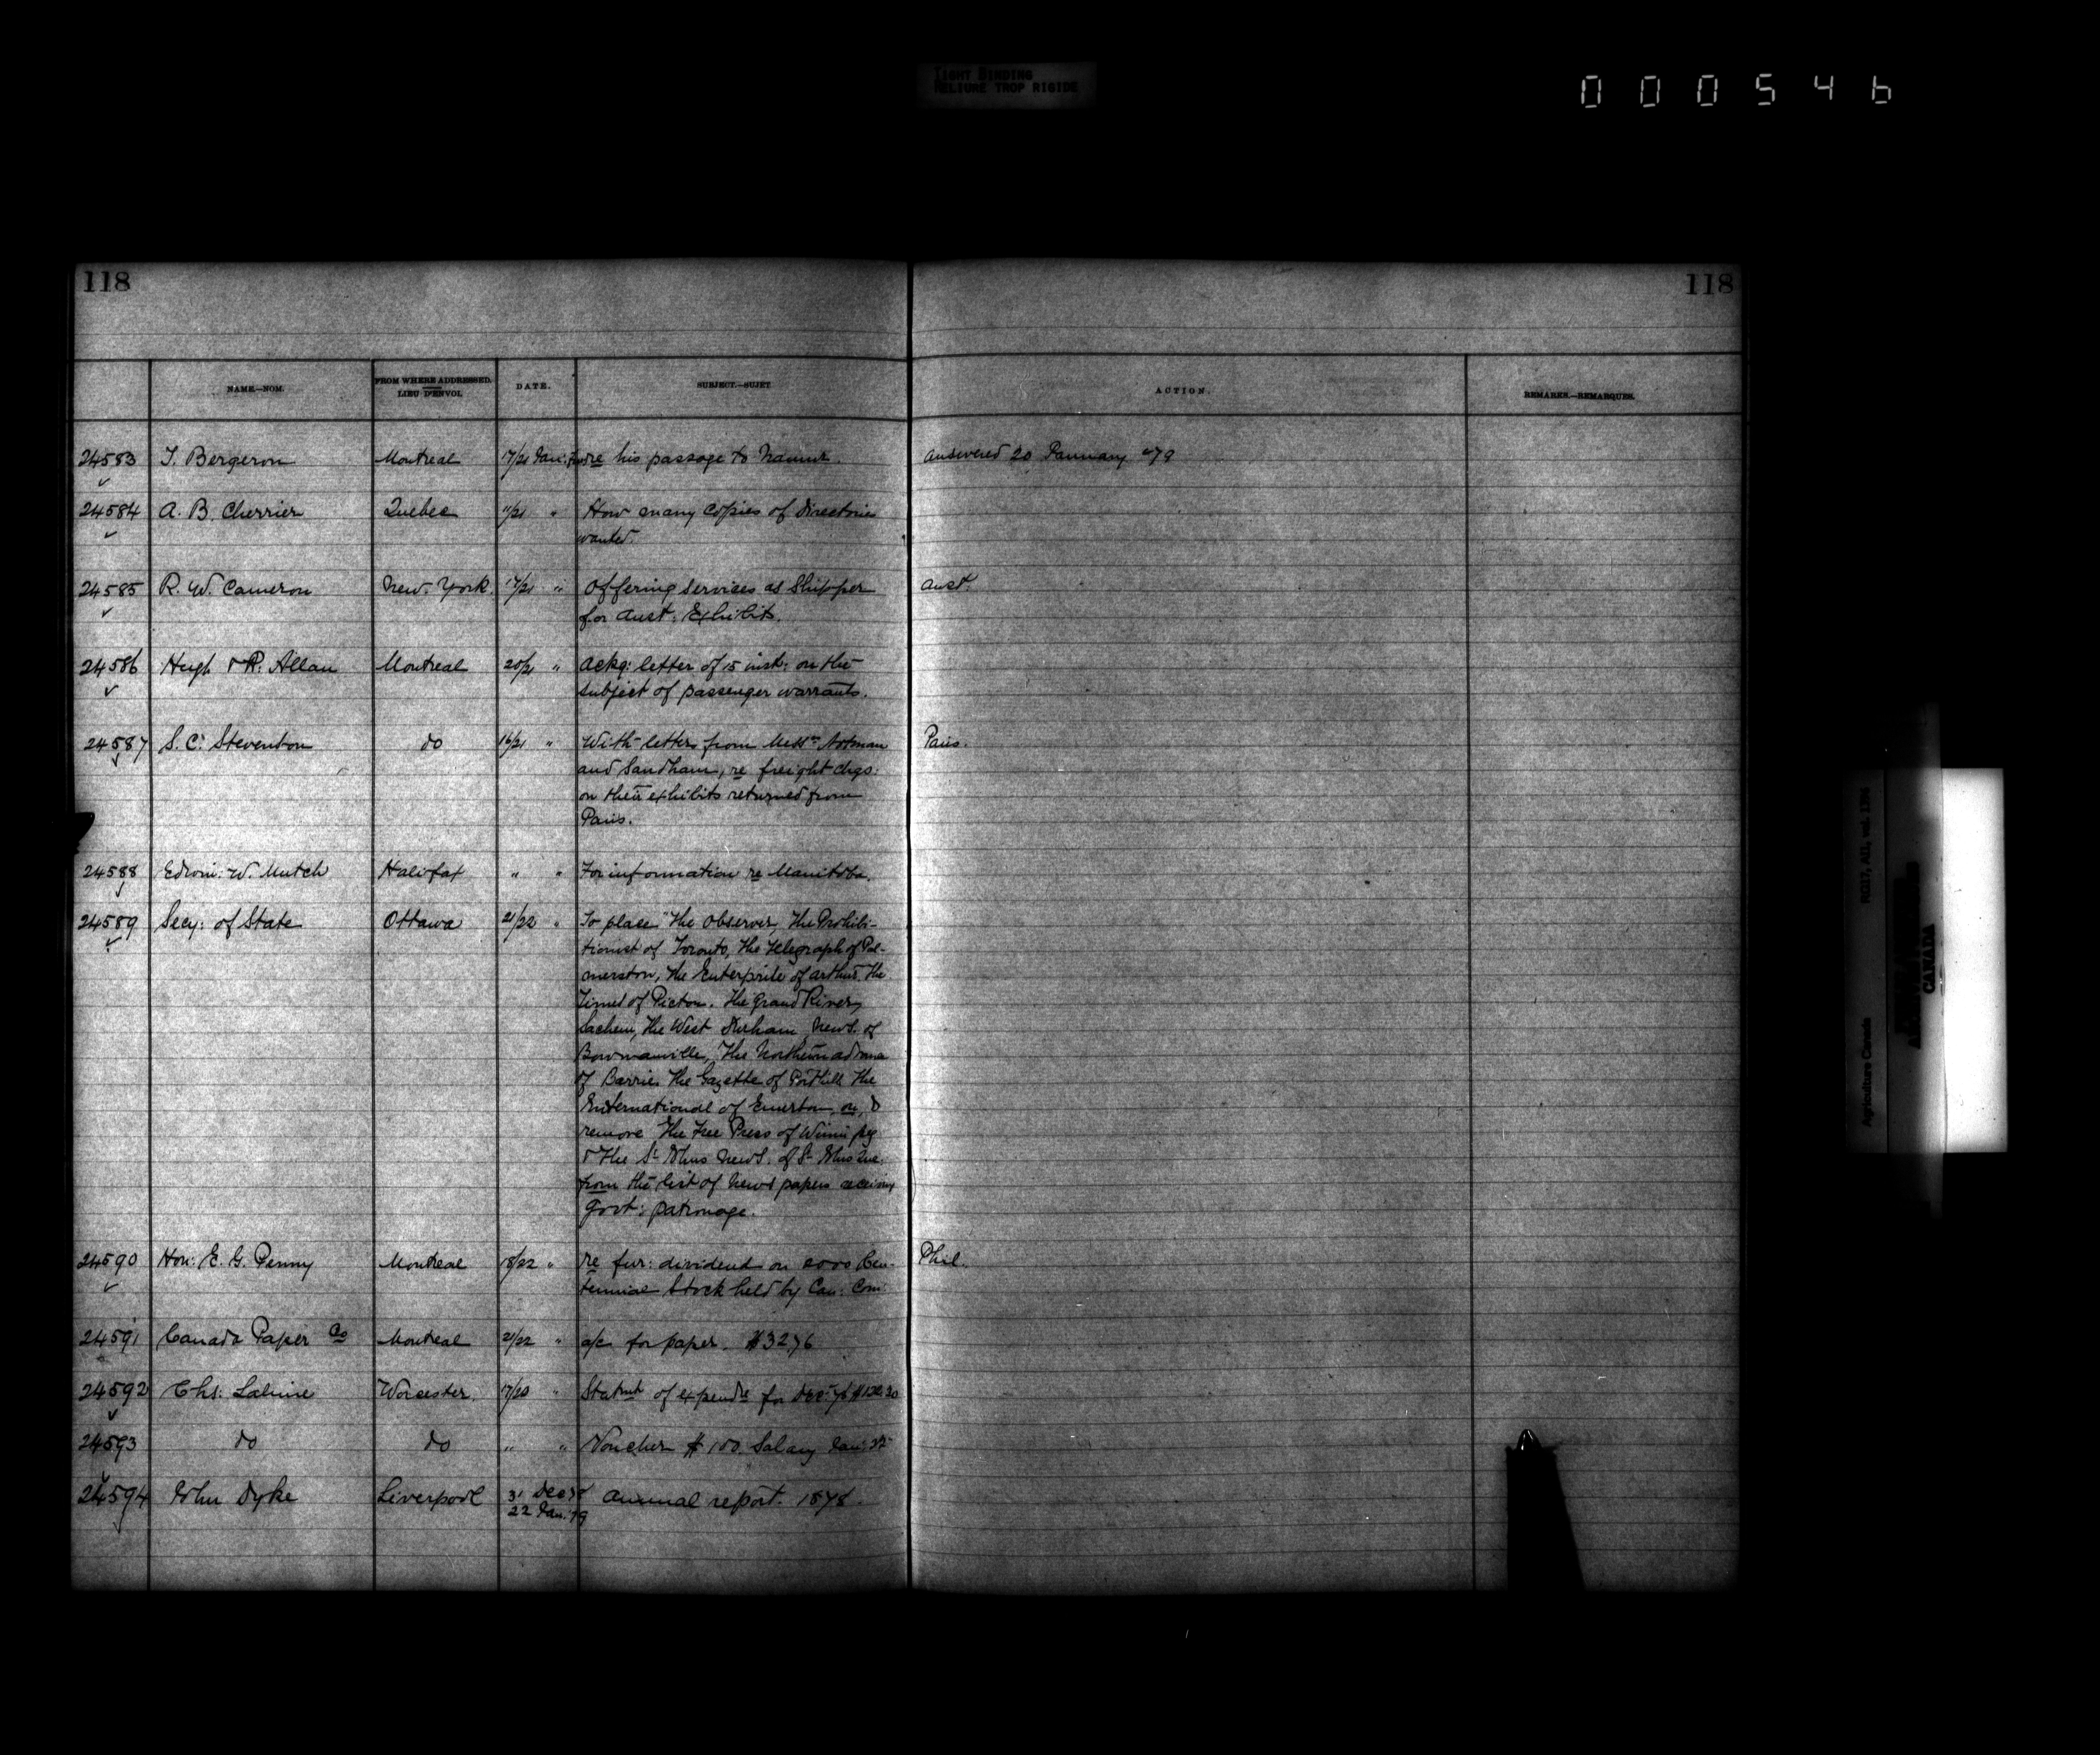 TIGHT BINDING
RELIURE TROP RIGIDE
000546
118
118
NAME.—NOM.
FROM WHERE ADDRESSED.
LIEU D'ENVOI.
DATE.
SUBJECT.—SUJET
ACTION.
REMARKS.—REMARQUES.
24583 T. Bergeron Montreal 17/21 Jan: re his passage to answered 20 January "79
24584 A. B. Cherrier Quebec 11/21 " How many copies of Directories
wanted.
24585 R. W. Cameron New-York. 17/21 " Offering services as Shipper Aust.
for Aust: Exhibits.
24586 Hugh & A. Allan Montreal 20/21 " Ackg: letter of 15 inst: on the
subject of passenger warrants.
24587 S. C. Stevenson do 16/21 " With letters from Messrs Notman Paris.
and Sandham, re freight chgs:
on their exhibits returned from
Paris.
24588 Edwin: W. Mutch Halifax " " For information re Manitoba.
24589 Secy: of State Ottawa 21/22 " To place "The Observer, The Prohibi-
tionist of Toronto, The Telegraph of Pal-
merston, The Enterprise of Arthur. The
Times of Picton. The Grand River
Sachem, The West Durham News. of
Bowmanville, The Northern Advance
of Barrie. The Gazette of The
International of Emerson, on, &
remove The Free Press of Winnipeg
& The St Johns News. of St Johns Que.
from the list of News papers receiving
Govt: patronage.
24590 Hon: E. G. Penny Montreal 18/22 " re fur: dividend on Cen- Phil.
tennial Stock held by Can: Com:
24591 Canada Paper Co Montreal 21/22 " a/c for paper. $3276
24592 Chs: Lalime Worcester. 17/20 " Statmt of expendre for Decr
24593 do do " " Voucher $100. Salary Jan:
24594 John Dyke Liverpool 31 Dec 78 Annual report. 1878.
22 Jan. 79
RG17, AII, vol. 1394
Agriculture Canada
CANADA